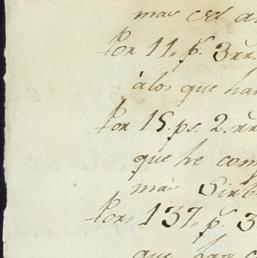 mas
Por 11. p.s 3 rr.
á los que han
Por 15. ps. 2. rr.
que he com
mas
Por 137. p.s 3
que han